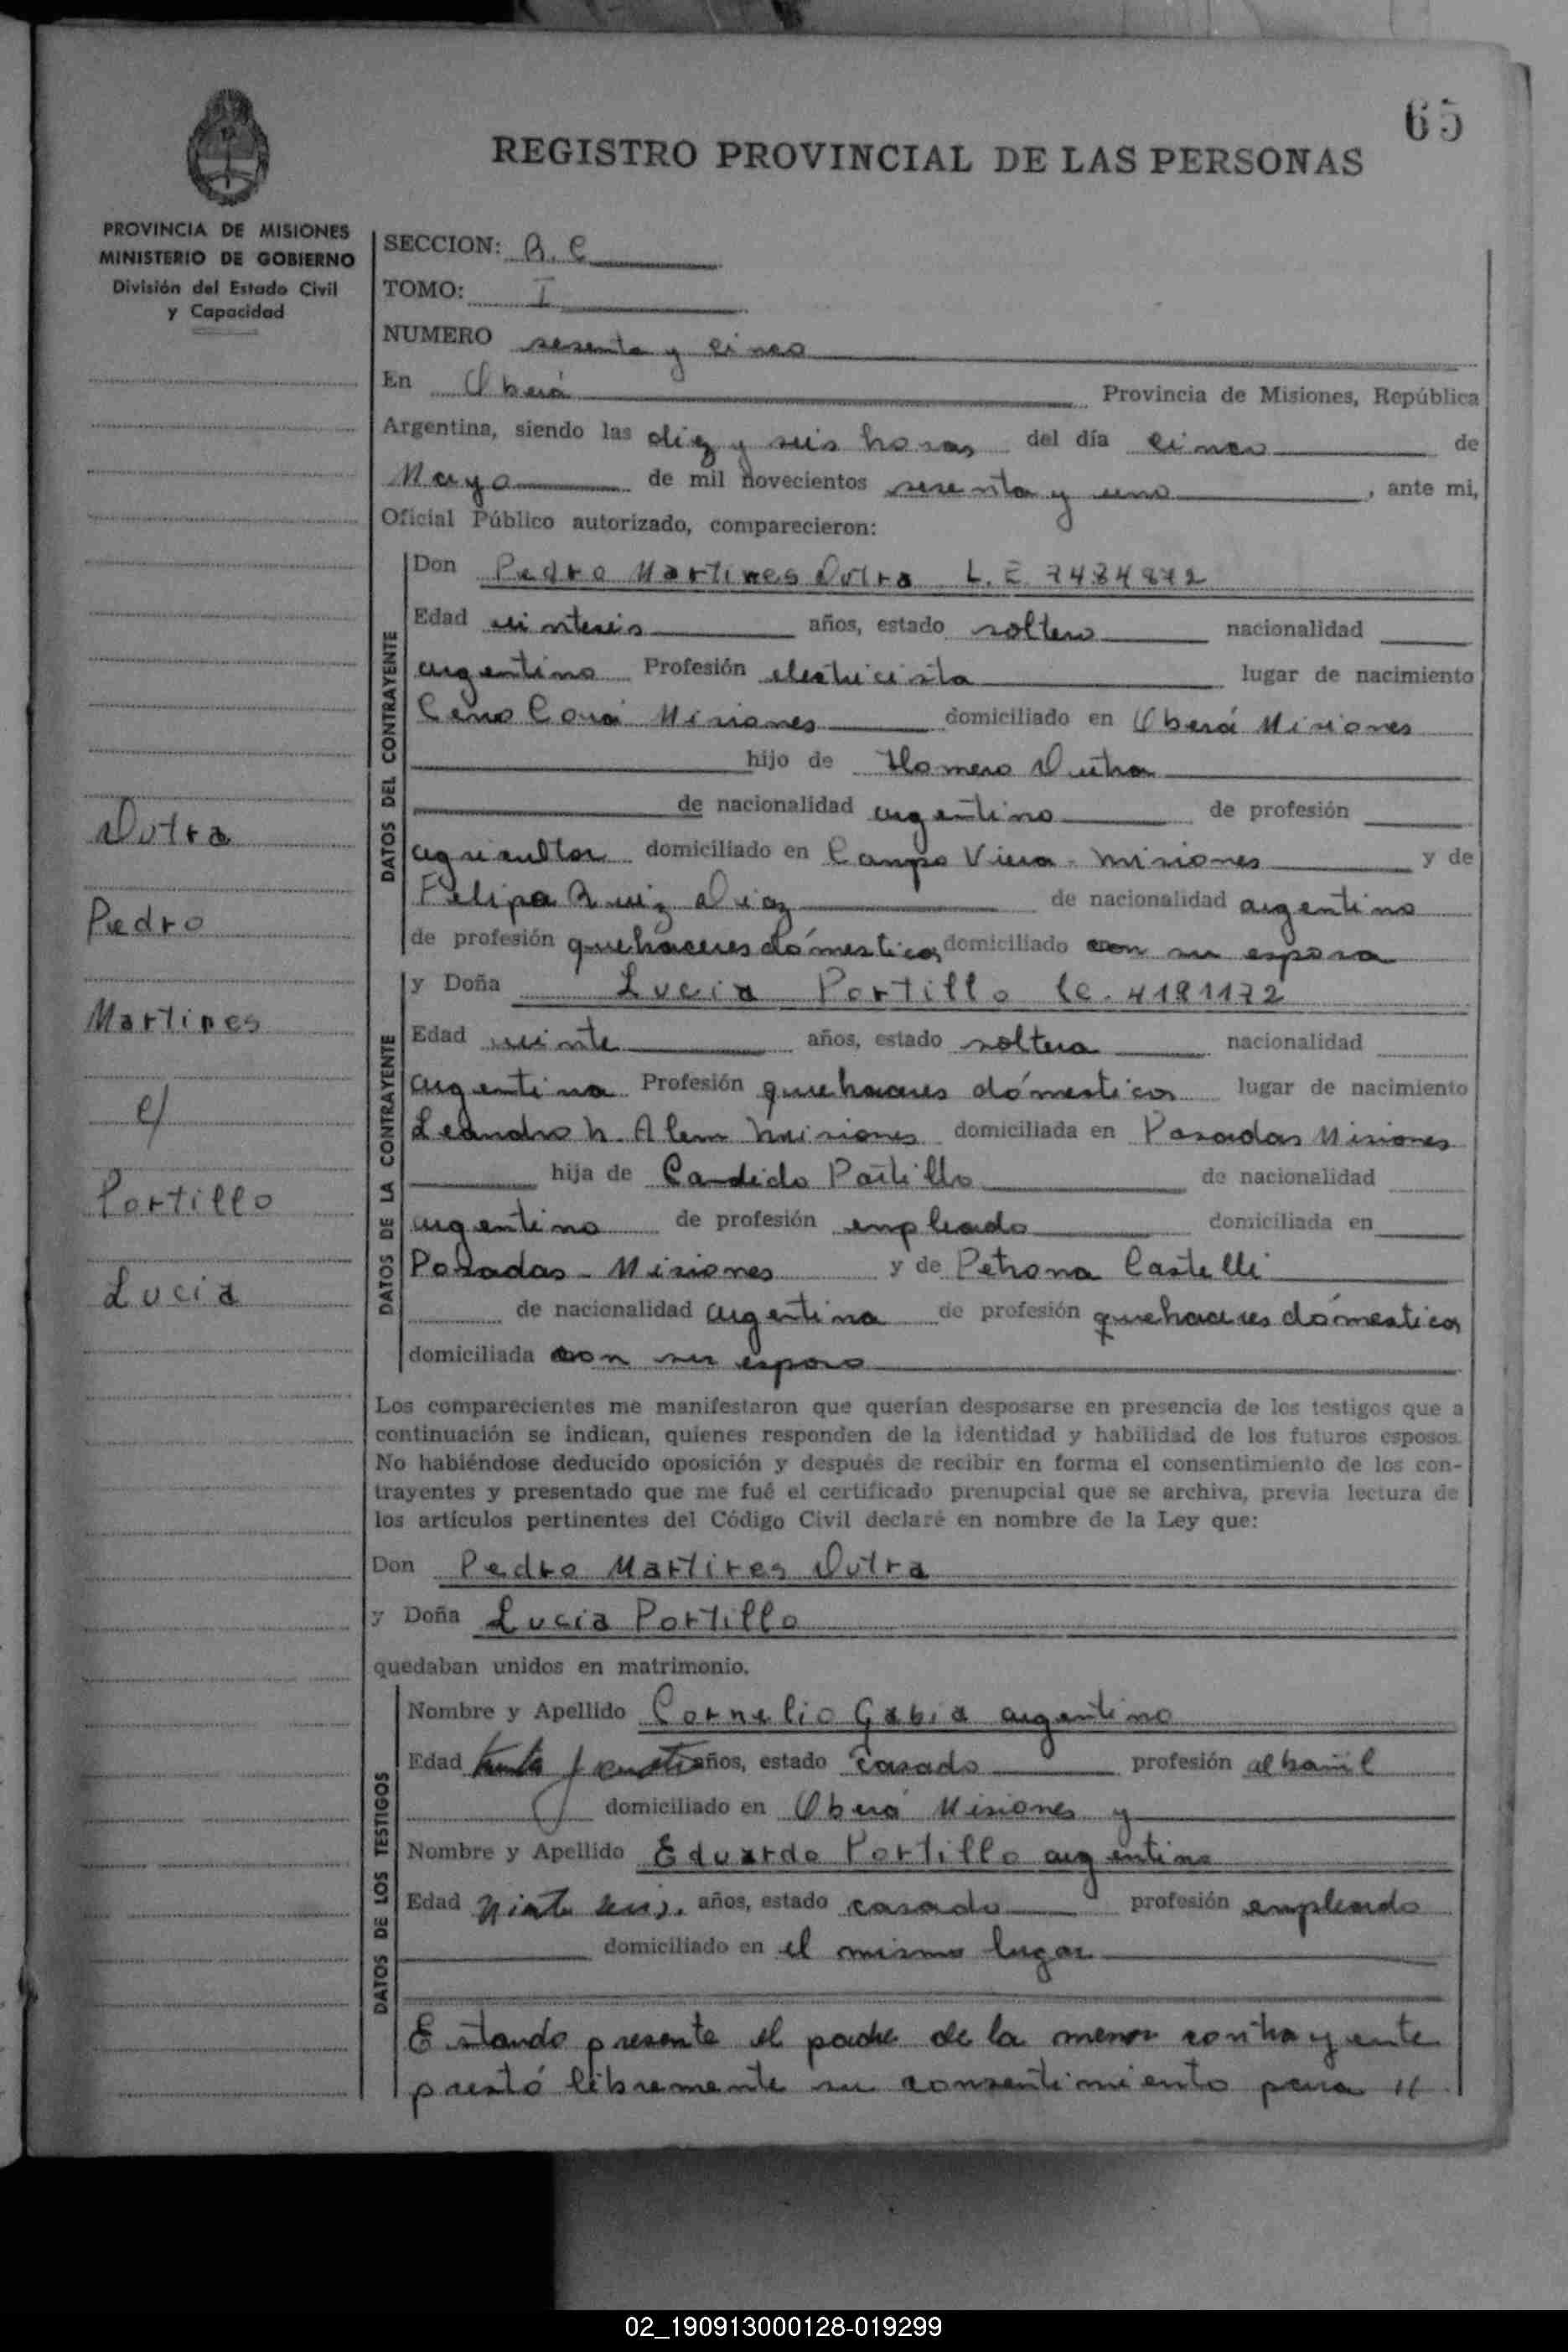 65
REGISTRO PROVINCIAL DE LAS PERSONAS
PROVINCIA DE MISIONES
MINISTERIO DE GOBIERNO
División del Estado Civil
y Capacidad
SECCION: R. C
TOMO: I
NUMERO sesenta y cinco
En Oberá Provincia de Misiones, República
Argentina, siendo las diez y seis horas del día cinco de
Mayo de mil novecientos sesenta y uno, ante mi,
Oficial Público autorizado, comparecieron:
DATOS DEL CONTRAYENTE
Don Pedro Martires Dutra L. E 7484872
Edad veinteseis años, estado soltero nacionalidad
argentino Profesión electricista lugar de nacimiento
Cerro Corá Misiones domiciliado en Oberá Misiones
hijo de Homero Dutra
de nacionalidad argentino de profesión
agricultor domiciliado en Campo Viera - Misiones y de
Felipa Ruiz Diaz de nacionalidad argentino
de profesión quehaceres dómesticos domiciliado con su esposa
Dutra
Pedro
Martires
c/
Portillo
Lucia
DATOS DE LA CONTRAYENTE
y Doña Lucia Portillo lc. 4191172
Edad veinte años, estado soltera nacionalidad
argentina Profesión quehaceres dómesticos lugar de nacimiento
Leandro N. Alem Misiones domiciliada en Posadas Misiones
hija de Candido Portillo de nacionalidad
argentino de profesión empleado domiciliada en
Posadas - Misiones y de Petrona Castelli
de nacionalidad argentina de profesión quehaceres dómesticos
domiciliada con su esposo
Los comparecientes me manifestaron que querían desposarse en presencia de los testigos que a
continuación se indican, quienes responden de la identidad y habilidad de los futuros esposos.
No habiéndose deducido oposición y después de recibir en forma el consentimiento de los con-
trayentes y presentado que me fué el certificado prenupcial que se archiva, previa lectura de
los artículos pertinentes del Código Civil declaré en nombre de la Ley que:
Don Pedro Martires Dutra
y Doña Lucia Portillo
quedaban unidos en matrimonio.
DATOS DE LOS TESTIGOS
Nombre y Apellido Cornelio Gabia argentino
Edad treinta y cuatro años, estado casado profesión albañil
domiciliado en Oberá Misiones y
Nombre y Apellido Eduardo Portillo argentino
Edad años, estado casado profesión empleado
domiciliado en el mismo lugar
Estando presente el padre de la menor contrayente
prestó libremente su consentimiento para //
02_190913000128-019299